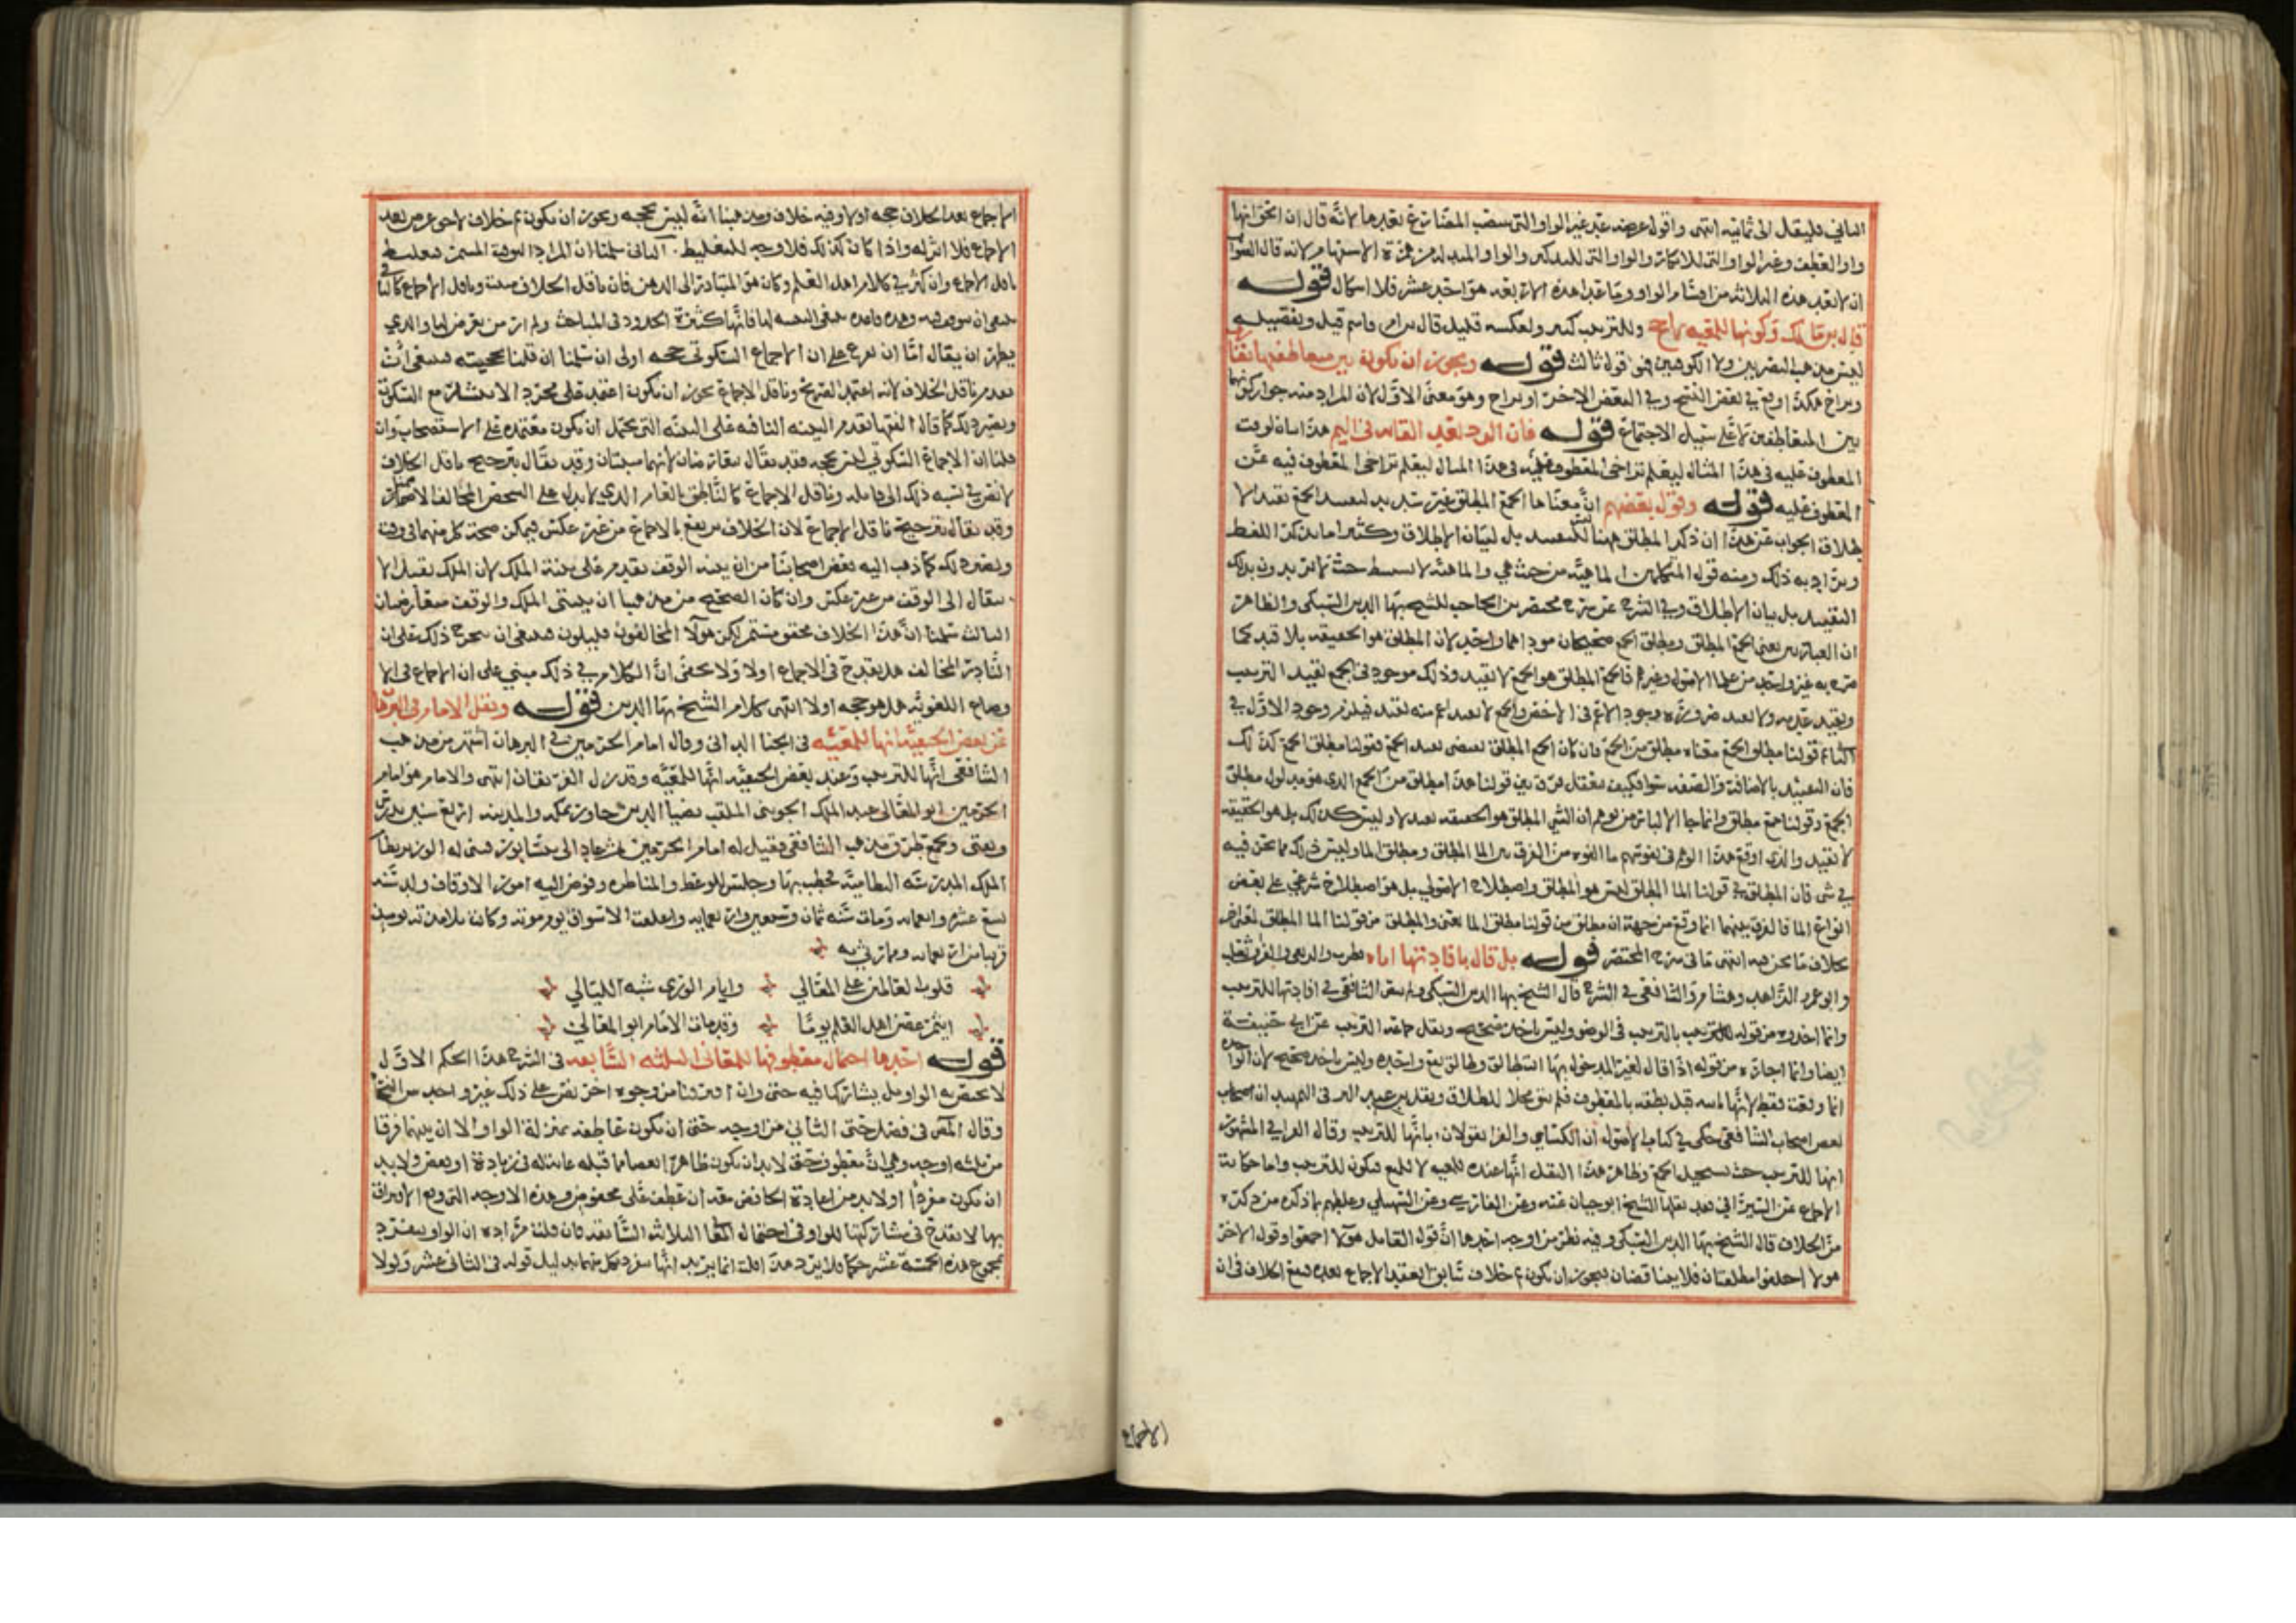 الثاني فليقال الى ثمانية انتهى واقول عرضه عد غير الواو التي ينصب المضارع بعدها لانه قال ان الحق انها
واو العطف وغير الواو التي للانكار والواو التي للتذكير والواو المبدلة من همزة الاستفهام لانه قال الصواب
ان لا تعد هذه الثلاثة من اقسام الواو وما عدا هذه الاربعة هو احد عشر فلا اشكال قوله
قال ابن مالك وكونها للمعية راجح وللترتيب كثير ولعكسه قليل قال ابن ام قاسم قيل وتفصيله
ليس مذهب البصريين ولا الكوفيين فهو قول ثالث قوله ويجوز ان يكون بين متعاطفيها تقارب
وتراخ هكذا وقع في بعض النسخ وفي البعض الاخر او تراخ وهو معنى الاول لان المراد منه جواز كونها
بين المتعاطفين لا على سبيل الاجتماع قوله فان الرد بعيد القائه في اليم هذا بيان لوقت
المعطوف عليه في هذا المثال ليعلم تراخي المعطوف في هذا المثال ليعلم تراخي المعطوف فيه عن
المعطوف عليه قوله وقول بعضهم ان معناها الجمع المطلق غير سديد لتقييد الجمع بقيد الا
طلاق الجواب عن هذا ان ذكر المطلق ههنا ليس للتقييد بل لبيان الاطلاق وكثيرا ما يذكر اللفظ
ويراد به ذلك ومنه قول المتكلمين الماهية من حيث هي والماهية لا بشرط حيث لا يريدون بذلك
التقييد بل بيان الاطلاق وفي الشرح عن شرح مختصر ابن الحاجب للشيخ بهاء الدين السبكي والظاهر
ان العبارتين يعني الجمع المطلق ومطلق الجمع صحيحتان موداهما واحد لان المطلق هو الحقيقة بلا قيد كما
صرح به غير واحد من علماء الاصول وغيرهم فالجمع المطلق هو الجمع لا بقيد وذلك موجود في الجمع بقيد الترتيب
وبقيد عدمه ولا بقيد ضرورة وجود الاعم في الاخص والجمع لا بقيد اعم منه بقيد فيلزم وجود الاول في
الثاني قولنا مطلق الجمع معناه مطلق من الجمع فان كان الجمع المطلق يقتضي تقييد الجمع فقولنا مطلق الجمع كذلك
فان التقييد بالاضافة والصفة سواء فكيف يعقل فرق بين قولنا هذا مطلق من الجمع الذي هو مدلول مطلق
الجمع وقولنا جمع مطلق وانما جاء الالباس من توهم ان الشي المطلق هو الحقيقة بقيد لا وليس كذلك بل هو الحقيقة
لا بقيد والذي اوقع هذا الوهم في نفوسهم ما الفوه من الفرق بين الما المطلق ومطلق الما وليس ذلك مما نحن فيه
في شي فان المطلق في قولنا الما المطلق ليس هو المطلق باصطلاح الاصولي بل هو اصطلاح شرعي على بعض
انواع الما فالفرق بينهما انما وقع من جهة ان مطلق من قولنا مطلق الما بمعنى والمطلق من قولنا الما المطلق لمعنى اخر
بخلاف ما نحن فيه انتهى ما في شرح المختصر قوله بل قال بافادتها اياه قطرب والربعي والفرا وثعلب
وابو عمر الزاهد وهشام والشافعي في الشرح قال الشيخ بهاء الدين السبكي ولم ينص الشافعي في افادتها للترتيب
وانما اخذوه من قوله بالترتيب في الوضو وليس باخذ صحيح ونقل جماعة الترتيب عن ابي حنيفة
ايضا وانما اخذوه من قوله اذا قال لغير المدخول بها انت طالق وطالق تقع واحدة وليس باخذ صحيح لان الواحدة
انما وقعت فقط لانها بانت قبل نطقه بالمعطوف فلم تبق محلا للطلاق ونقل ابن عبد البر في التمهيد ان بعض
اصحاب الشافعي حكى في كتاب الاصول ان الكسائي والفرا يقولان بانها للترتيب وقال الفرا في المشهور
انها للترتيب حيث يستحيل الجمع وظاهر هذا النقل انها عنده للمعية لا للجمع فتكون للترتيب واما حكاية
الاجماع عن السيرافي فقد نقلها الشيخ ابو حيان عنه وعن الفارسي وعن السهيلي وغلطهم بما ذكره من ذكره
من الخلاف قال الشيخ بهاء الدين السبكي وفيه نظر من اوجه احدها ان قول القايل هولا اجمعوا وقول الاخر
هولا اختلفوا مطلقتان فلا يتناقضان فيجوز ان يكون ثم خلاف سابق انعقد الاجماع بعده فيقع الكلام في ان
الاجماع
الاجماع بعد الخلاف حجه اولا وفيه خلاف ومذهبنا انه ليس بحجه ويجوز ان يكون ثم خلاف لاحق عرض بعد
الاجماع فلا اثر له واذا كان كذلك فلا وجه للتغليط الثاني سلمنا ان المراد
ناقل الاجماع وان كثر في كلام اهل العلم وكان هو المتبادر الى الذهن فان ناقل الخلاف مثبت وناقل الاجماع كالنافي
ينبغي ان يتوقف فيه وهذه قاعدة ينبغي التنبه لها فانها كثيرة الدور في المباحث ولم ار من تعرض لها والذي
يظهر ان يقال اما ان نفرع على ان الاجماع السكوتي حجه اولى ان سلمنا ان قلنا بحجيته فينبغي ان
يقدم ناقل الخلاف لانه اعتمد التصريح وناقل الاجماع يجوز ان يكون اعتمد على مجرد الانتشار مع السكوت
ويصير ذلك كما قال الفقها تقدم البينه النافيه على البينه التي يحتمل ان تكون معتمدة على الاستصحاب وان
قلنا ان الاجماع السكوتي ليس بحجه فقد يقال يتعارضان لانهما مثبتان وقد يقال بترجيح ناقل الخلاف
وقد يقال بترجيح ناقل الاجماع لان الخلاف يرتفع بالاجماع من غير عكس فيمكن صحة كل منهما في وقت
ويصير ذلك كما ذهب اليه بعض اصحابنا من ان بينة الوقف تقدم على بينة الملك لان الملك يقبل الا
نتقال الى الوقف من غير عكس وان كان الصحيح من مذهبنا ان بينتي الملك والوقف متعارضان
الثالث سلمنا ان هذا الخلاف محقق مستمر لكن هولا المخالفون قليلون فينبغي ان يخرج ذلك على ان
النادر المخالف هل يقدح في الاجماع اولا ولا يخفى ان الكلام في ذلك مبني على ان الاجماع في الا
وضاع اللغوية هل هو حجه اولا انتهى كلام الشيخ بهاء الدين قوله ونقل الامام في البرهان
عن بعض الحنفية انها للمعيه في الجنا الداني وقال امام الحرمين في البرهان اشتهر من مذهب
الشافعي انها للترتيب وعند بعض الحنفية انها للمعيه وقد زل الفريقان انتهى والامام هو امام
الحرمين ابو المعالي عبد الملك الجويني الملقب بضيا الدين جاور بمكه والمدينه اربع سنين يدرس
ويفتي ويجمع طرق مذهب الشافعي فقيل له امام الحرمين ثم عاد الى نيسابور فبنى له الوزير نظام
الملك المدرسه النظاميه فخطب بها وجلس للوعظ والمناظره وفوض اليه امور الاوقاف ولد سنه
تسع عشره واربعمايه ومات سنه ثمان وسبعين واربعمايه واغلقت الاسواق يوم موته وكانت تلامذته يوميذ
قريبا من اربعمايه ومما رثي به
قلوب العالمين على المقالي وايام الورى شبه الليالي
ايثمر غصن اهل العلم يوما وقد مات الامام ابو المعالي
قوله احدها احتمال معطوفها للمعاني الثلثه السابقه في الشرح هذا الحكم الاول
لا يختص به الواو بل يشاركها فيه حتى وان افترقتا من وجوه اخر نص على ذلك غير واحد من النحاة
وقال المص في فصل حتى الثاني من اوجه حتى ان تكون عاطفه بمنزلة الواو الا ان بينهما فرقا
من ثلثه اوجه وهي ان معطوف حتى لابد ان يكون ظاهرا بعضا مما قبله غايتله في زيادة او نقص ولابد
ان يكون مفردا ولابد من اعادة الخافض معه ان عطف على مخفوض وهذه الاوجه التي وقع الافتراق
بها لا تقدح في مشاركتها للواو في احتمال المعاني الثلاثه السابقه فان قلت مراده ان الواو تنفرد
بمجموع هذه الخمسه عشر حكما فلا يرد هذا قلت انما يريد انها تنفرد بكل منها بدليل قوله في الثاني عشر ولولا